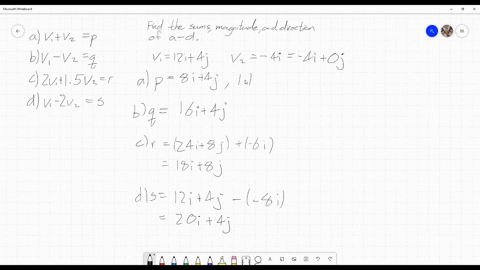 Microsoft Whiteboard
Find the sums, magnitude, and direction
of a-d.
a) v₁+v₂ = p
b) v₁-v₂ = q
c) 2v₁+1.5v₂ = r
d) v₁-2v₂ = s
v₁ = 12i+4j v₂ = -4i = -4i+0j
a) p = 8i+4j ,
b) q = 16i+4j
c) r = (24i+8j) + (-6i)
= 18i+8j
d) s = 12i+4j - (-8i)
= 20i+4j